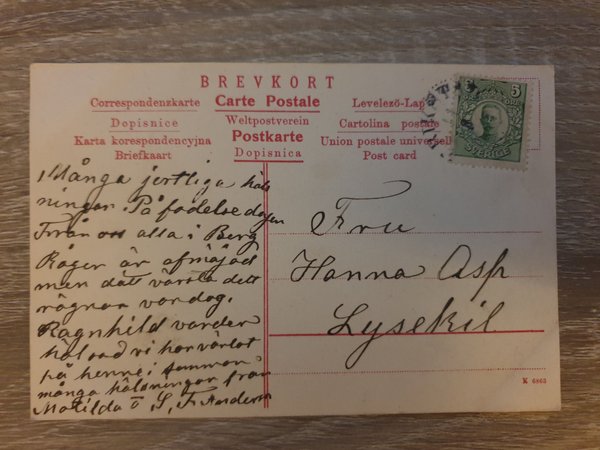 BREVKORT
Correspondenzkarte Carte Postale Levelező-Lap
Dopisnice Weltpostverein Cartolina postale
Karta korespondencyjna Postkarte Union postale universelle
Briefkaart Dopisnica Post card
5
SVERIGE
Många jertliga häls
ningar På fädelsedagen
Från oss alla i Berg
Råger är afmäjad
men dätt värsta dett
rägnar var dag.
Ragnhild
vi har väntat
på henne i sommar
många hälsningar från
Matilda o S, F. Anderson
Fru
Hanna Asp
Lysekil
K 6863